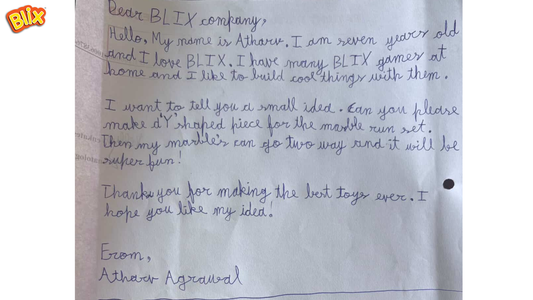 Blix
Dear BLIX company,
Hello, My name is Atharv. I am seven years old
and I love BLIX. I have many BLIX games at
home and I like to build cool things with them.
I want to tell you a small idea. Can you please
make a 'Y' shaped piece for the marble run set.
Then my marble's can go two way and it will be
super fun!
Thank you for making the best toys ever. I
hope you like my idea!
From,
Atharv Agrawal